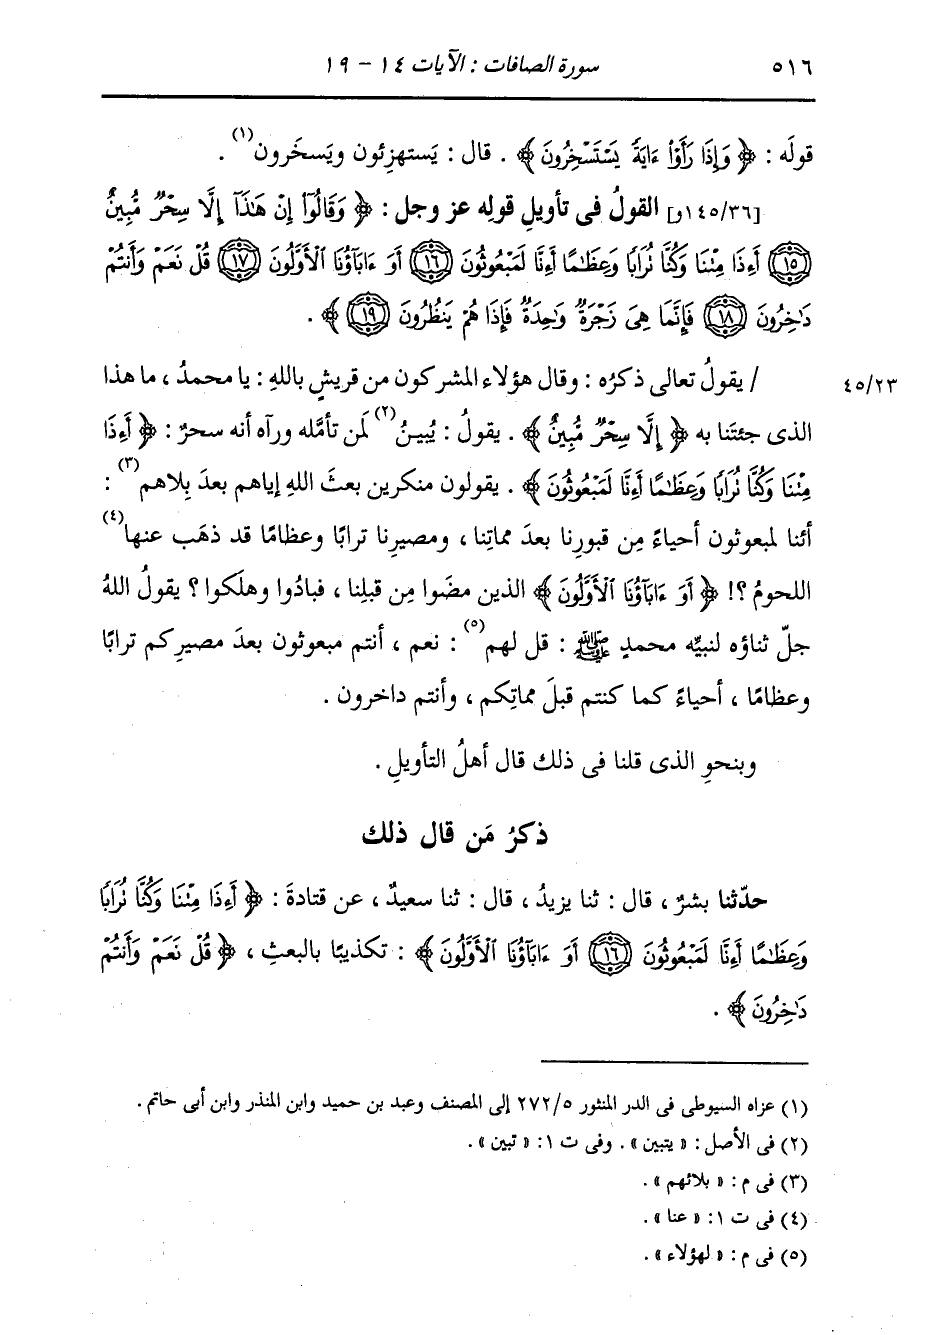 ٥١٦ سورة الصافات : الآيات ١٤ - ١٩
قولَه : ﴿ وَإِذَا رَأَوْا۟ ءَايَةً يَسْتَسْخِرُونَ ﴾ . قال : يَستهزِئون ويَسخَرون(١) .
[١٤٥/٣٦و] القولُ فى تأويلِ قولِه عز وجل : ﴿ وَقَالُوٓا۟ إِنْ هَـٰذَآ إِلَّا سِحْرٌ مُّبِينٌ
(١٥) أَءِذَا مِتْنَا وَكُنَّا تُرَابًا وَعِظَـٰمًا أَءِنَّا لَمَبْعُوثُونَ (١٦) أَوَ ءَابَآؤُنَا ٱلْأَوَّلُونَ (١٧) قُلْ نَعَمْ وَأَنتُمْ
دَٰخِرُونَ (١٨) فَإِنَّمَا هِىَ زَجْرَةٌ وَٰحِدَةٌ فَإِذَا هُمْ يَنظُرُونَ (١٩) ﴾ .
٤٥/٢٣ / يقولُ تعالى ذكرُه : وقال هؤلاء المشركون من قريشٍ باللهِ : يا محمدُ ، ما هذا
الذى جئتَنا به ﴿ إِلَّا سِحْرٌ مُّبِينٌ ﴾ . يقولُ : يُبينُ(٢) لمن تأمَّله ورآه أنه سحرٌ : ﴿ أَءِذَا
مِتْنَا وَكُنَّا تُرَابًا وَعِظَـٰمًا أَءِنَّا لَمَبْعُوثُونَ ﴾ . يقولون منكرين بعثَ اللهِ إياهم بعدَ بِلاهم(٣) :
أئنا لمبعوثون أحياءً مِن قبورِنا بعدَ مماتِنا ، ومصيرِنا ترابًا وعظامًا قد ذهَب عنها(٤)
اللحومُ ؟! ﴿ أَوَ ءَابَآؤُنَا ٱلْأَوَّلُونَ ﴾ الذين مضَوا مِن قبلِنا ، فبادُوا وهلَكوا ؟ يقولُ اللهُ
جلّ ثناؤه لنبيِّه محمدٍ ﷺ : قل لهم(٥) : نعم ، أنتم مبعوثون بعدَ مصيرِكم ترابًا
وعظامًا ، أحياءً كما كنتم قبلَ مماتِكم ، وأنتم داخرون .
وبنحوِ الذى قلنا فى ذلك قال أهلُ التأويلِ .
ذكرُ مَن قال ذلك
حدّثنا بشرٌ ، قال : ثنا يزيدُ ، قال : ثنا سعيدٌ ، عن قتادةَ : ﴿ أَءِذَا مِتْنَا وَكُنَّا تُرَابًا
وَعِظَـٰمًا أَءِنَّا لَمَبْعُوثُونَ (١٦) أَوَ ءَابَآؤُنَا ٱلْأَوَّلُونَ ﴾ : تكذيبًا بالبعثِ ، ﴿ قُلْ نَعَمْ وَأَنتُمْ
دَٰخِرُونَ ﴾ .
(١) عزاه السيوطى فى الدر المنثور ٢٧٢/٥ إلى المصنف وعبد بن حميد وابن المنذر وابن أبى حاتم .
(٢) فى الأصل : « يتبين » . وفى ت ١ : « تبين » .
(٣) فى م : « بلائهم » .
(٤) فى ت ١ : « عنا » .
(٥) فى م : « لهؤلاء » .